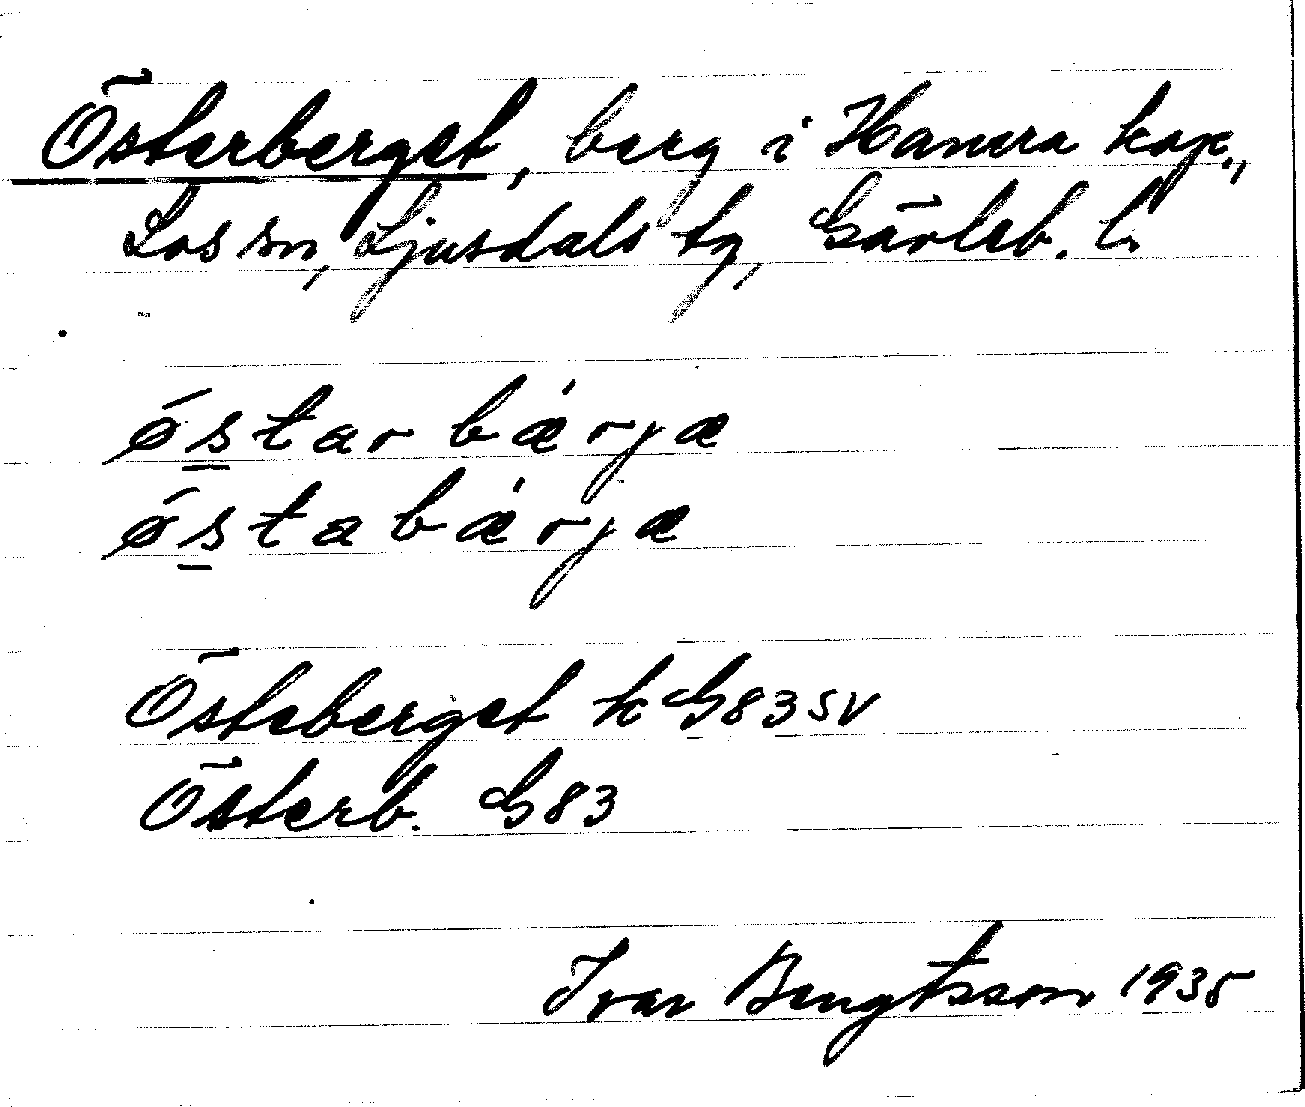 Österberget, berg i Hamra kap.,
Los sn, Ljusdals tg, Gävleb. l.
ǿstarbǽrjæ
ǿstabǽrjæ
Österberget k G83SV
Österb. G83
Ivar Bengtsson 1935